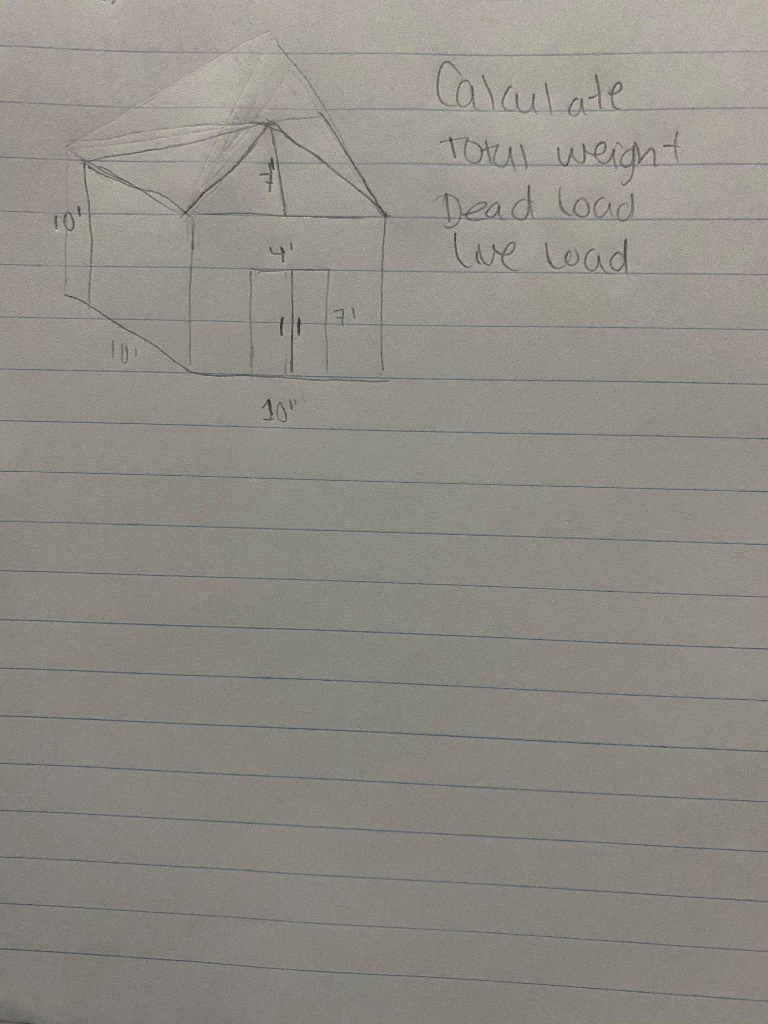 Calculate
Total weight
Dead load
Live load
7'
10'
4'
7'
10'
10"